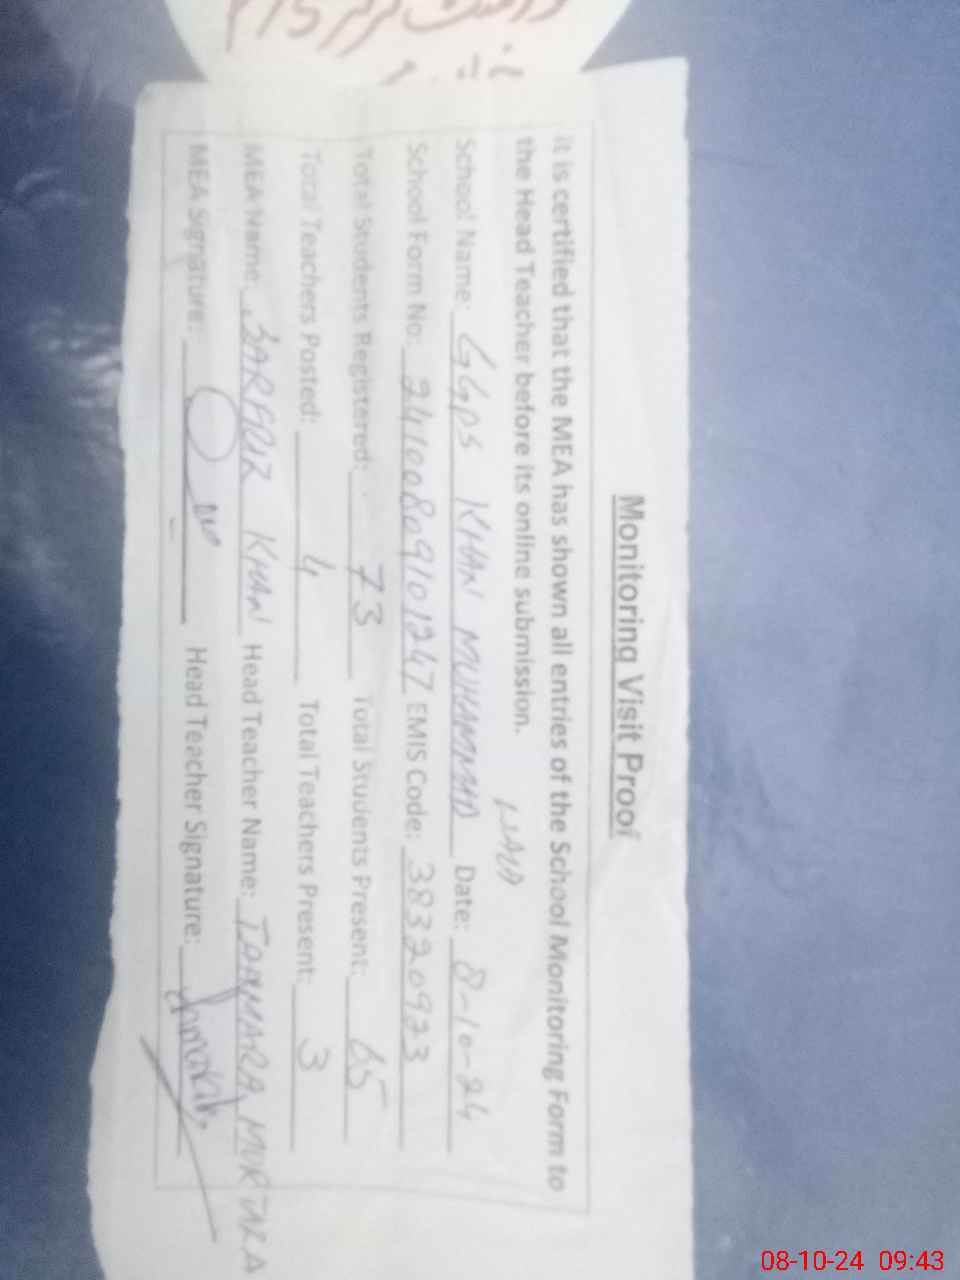 Monitoring Visit Proof
It is certified that the MEA has shown all entries of the School Monitoring Form to
the Head Teacher before its online submission.
WALA
School Name: GGPS KHAN MUHAMMAD Date: 8-10-24
School Form No: 24100809101247 EMIS Code: 38320923
Total Students Registered: 73 Total Students Present: 65
Total Teachers Posted: 4 Total Teachers Present: 3
MEA Name: SARFRIZ KHAN Head Teacher Name: MURTAZA
MEA Signature: Head Teacher Signature:
08-10-24 09:43